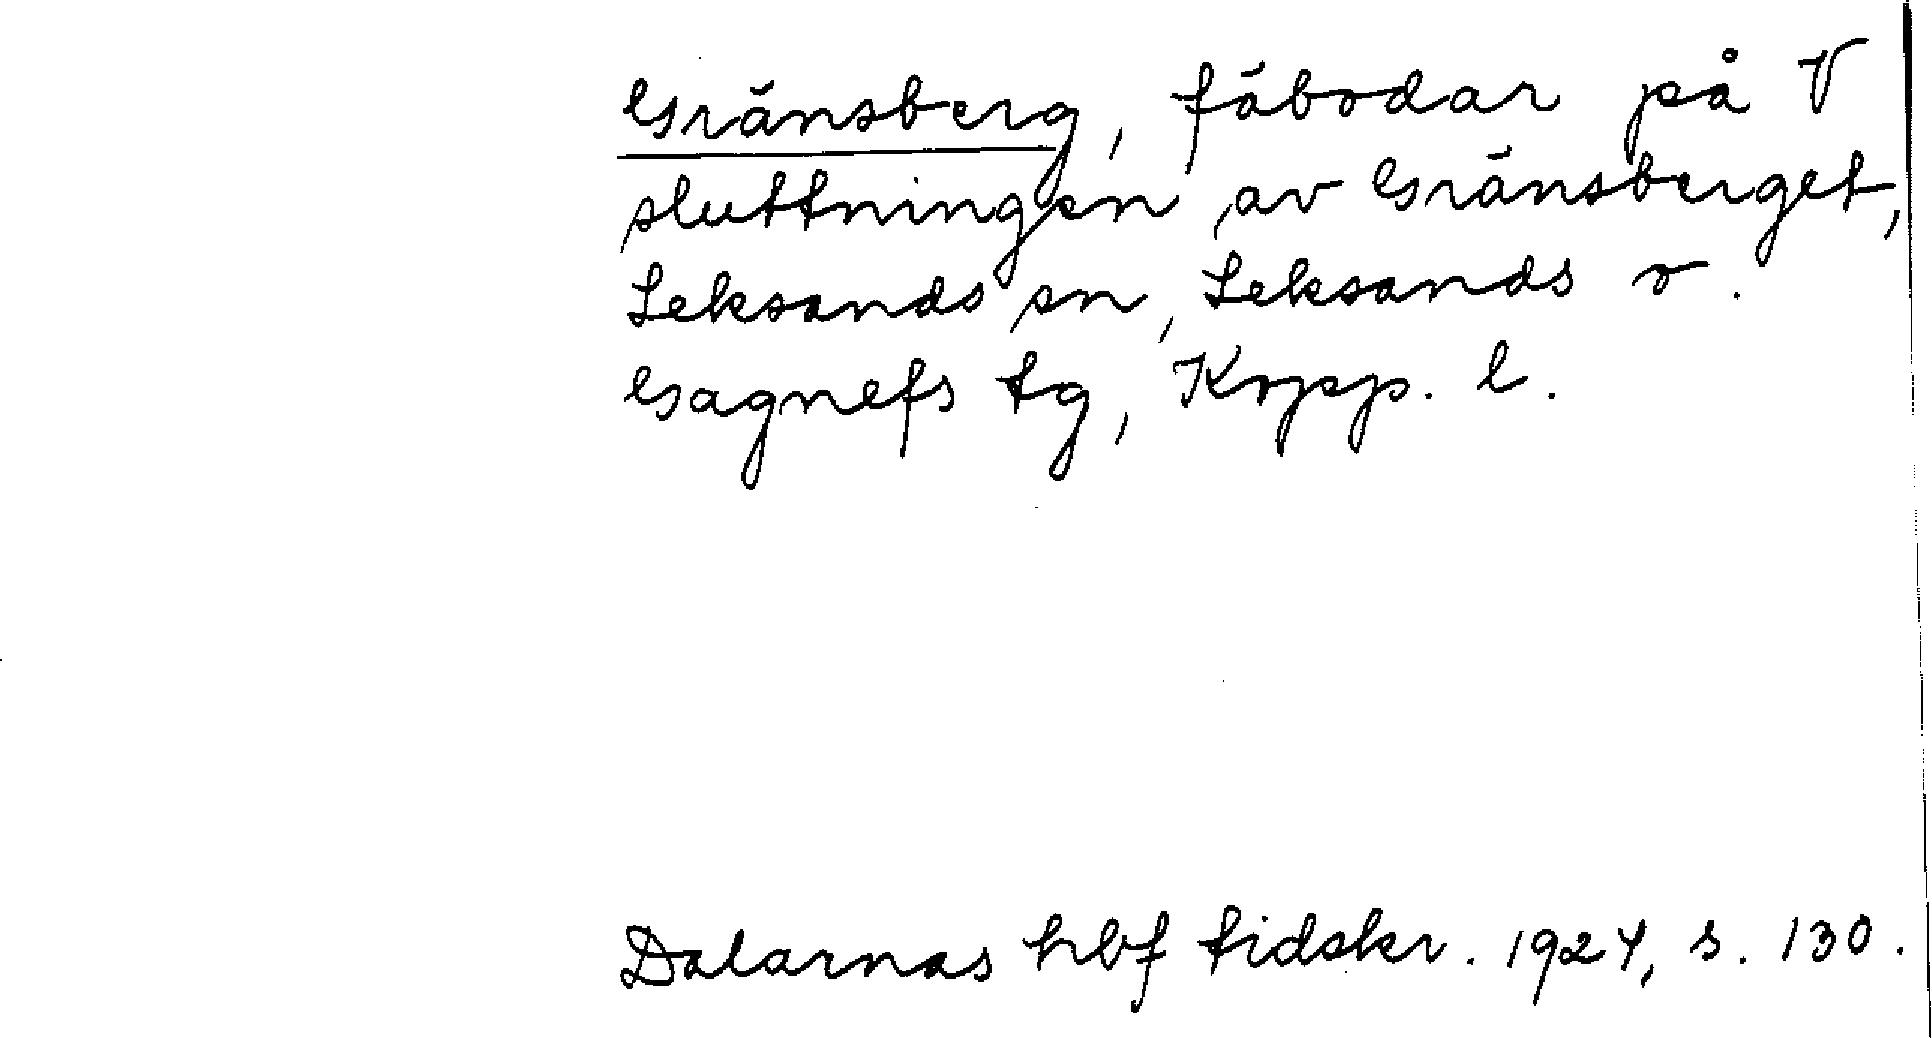 Gränsberg, fäbodar på V
sluttningen av Gränsberget,
Leksands sn, Leksands o.
Gagnefs tg, Kopp. l.
Dalarnas hbf tidskr. 1924, s. 130.